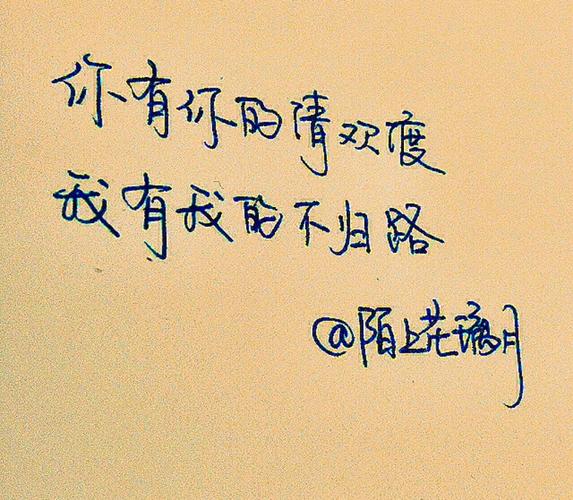 你有你的清欢度
我有我的不归路
@陌上芒璃月